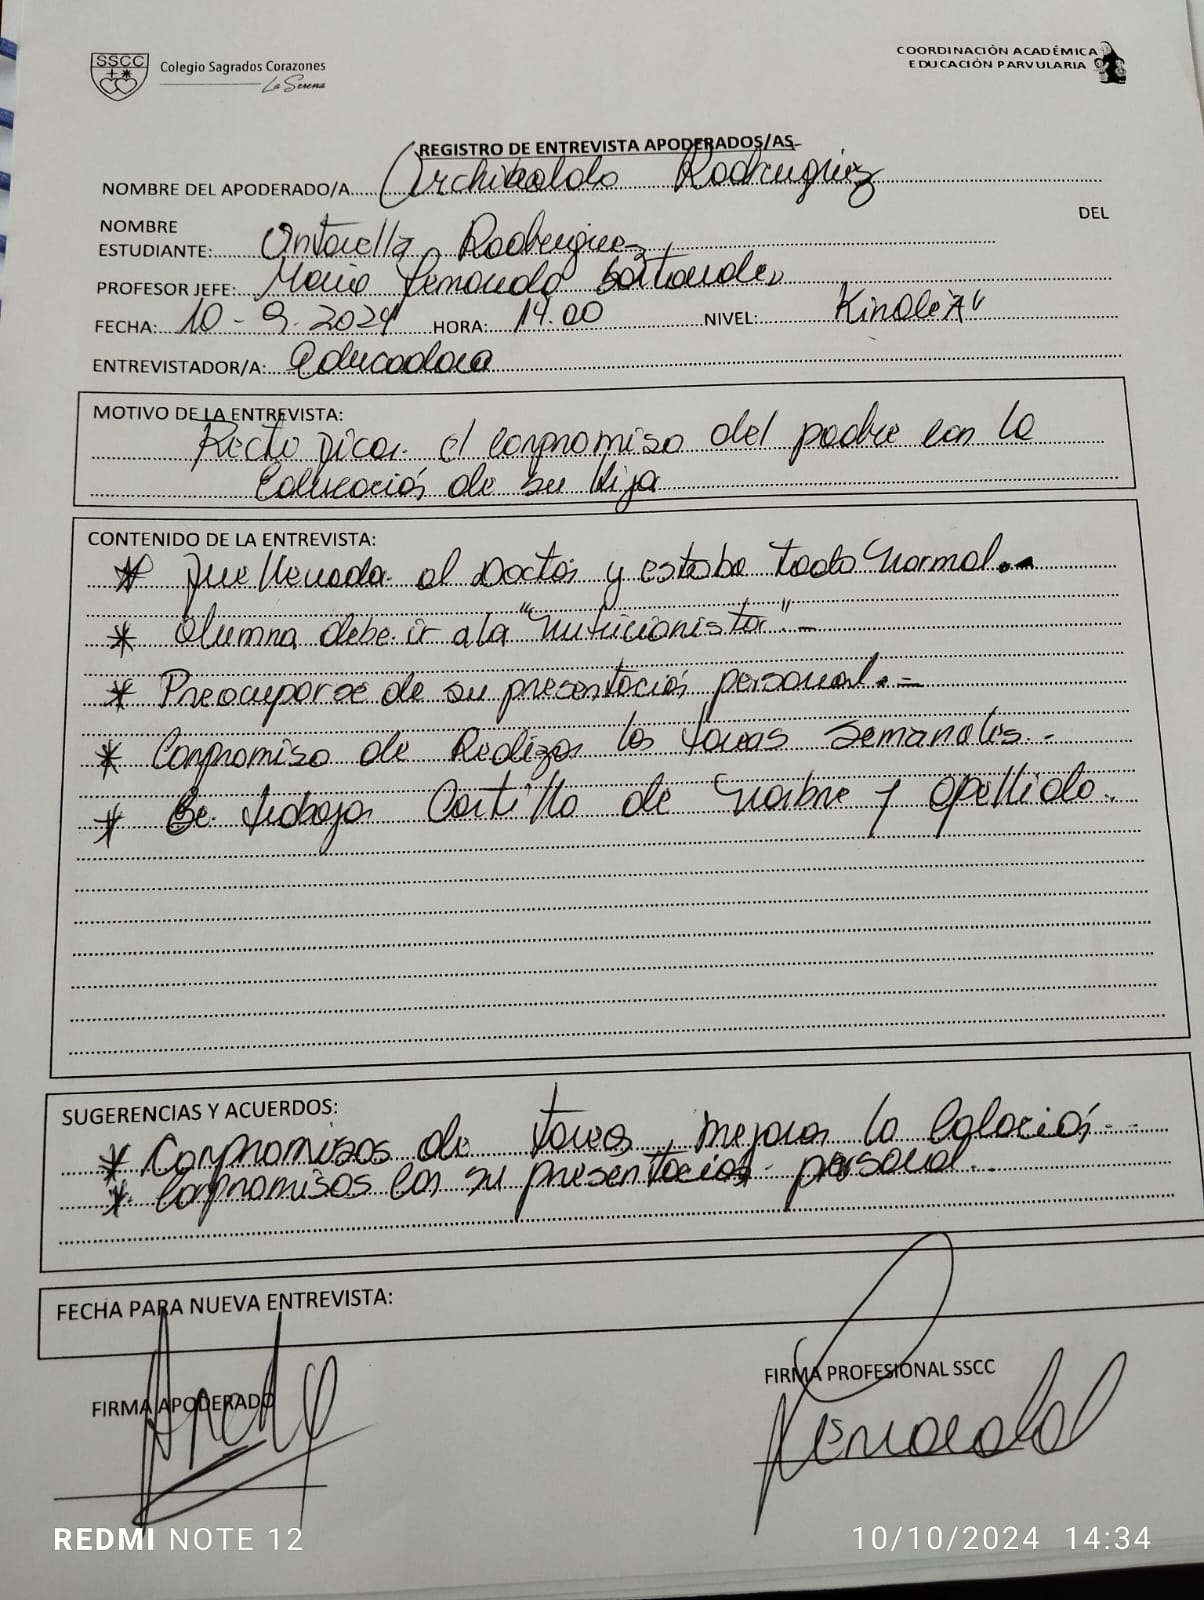 SSCC
Colegio Sagrados Corazones
La Serena
COORDINACIÓN ACADÉMICA
EDUCACIÓN PARVULARIA
REGISTRO DE ENTREVISTA APODERADOS/AS
NOMBRE DEL APODERADO/A Archibaldo Rodriguez
NOMBRE DEL
ESTUDIANTE: Antonella Rodriguez
PROFESOR JEFE: María Fernanda
FECHA: 10-9-2024 HORA: 14.00 NIVEL: Kinder
ENTREVISTADOR/A: Educadora
MOTIVO DE LA ENTREVISTA:
el compromiso del padre con la
Educación de su Hija
CONTENIDO DE LA ENTREVISTA:
* Fue llevada al Doctor y estaba todo normal.-
* Alumna debe ir a la "nutricionista".-
* Preocuparse de su presentación personal.-
* Compromiso de Realizar las tareas semanales.-
* Se trabaja Cartilla de nombre y apellido.
SUGERENCIAS Y ACUERDOS:
* Compromisos de tareas, mejorar la
* Compromisos con su presentación personal.
FECHA PARA NUEVA ENTREVISTA:
FIRMA APODERADO
FIRMA PROFESIONAL SSCC
REDMI NOTE 12
10/10/2024 14:34